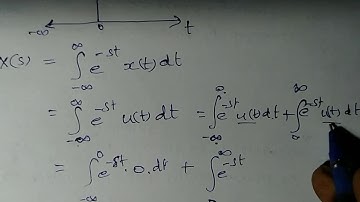 -∞ 0 t
X(s) = ∫_{-∞}^{∞} e^{-st} x(t) dt
= ∫_{-∞}^{∞} e^{-st} u(t) dt = ∫_{-∞}^{0} e^{-st} u(t) dt + ∫_{0}^{∞} e^{-st} u(t) dt
= ∫_{-∞}^{0} e^{-st} · 0 · dt + ∫^{∞} e^{-st}